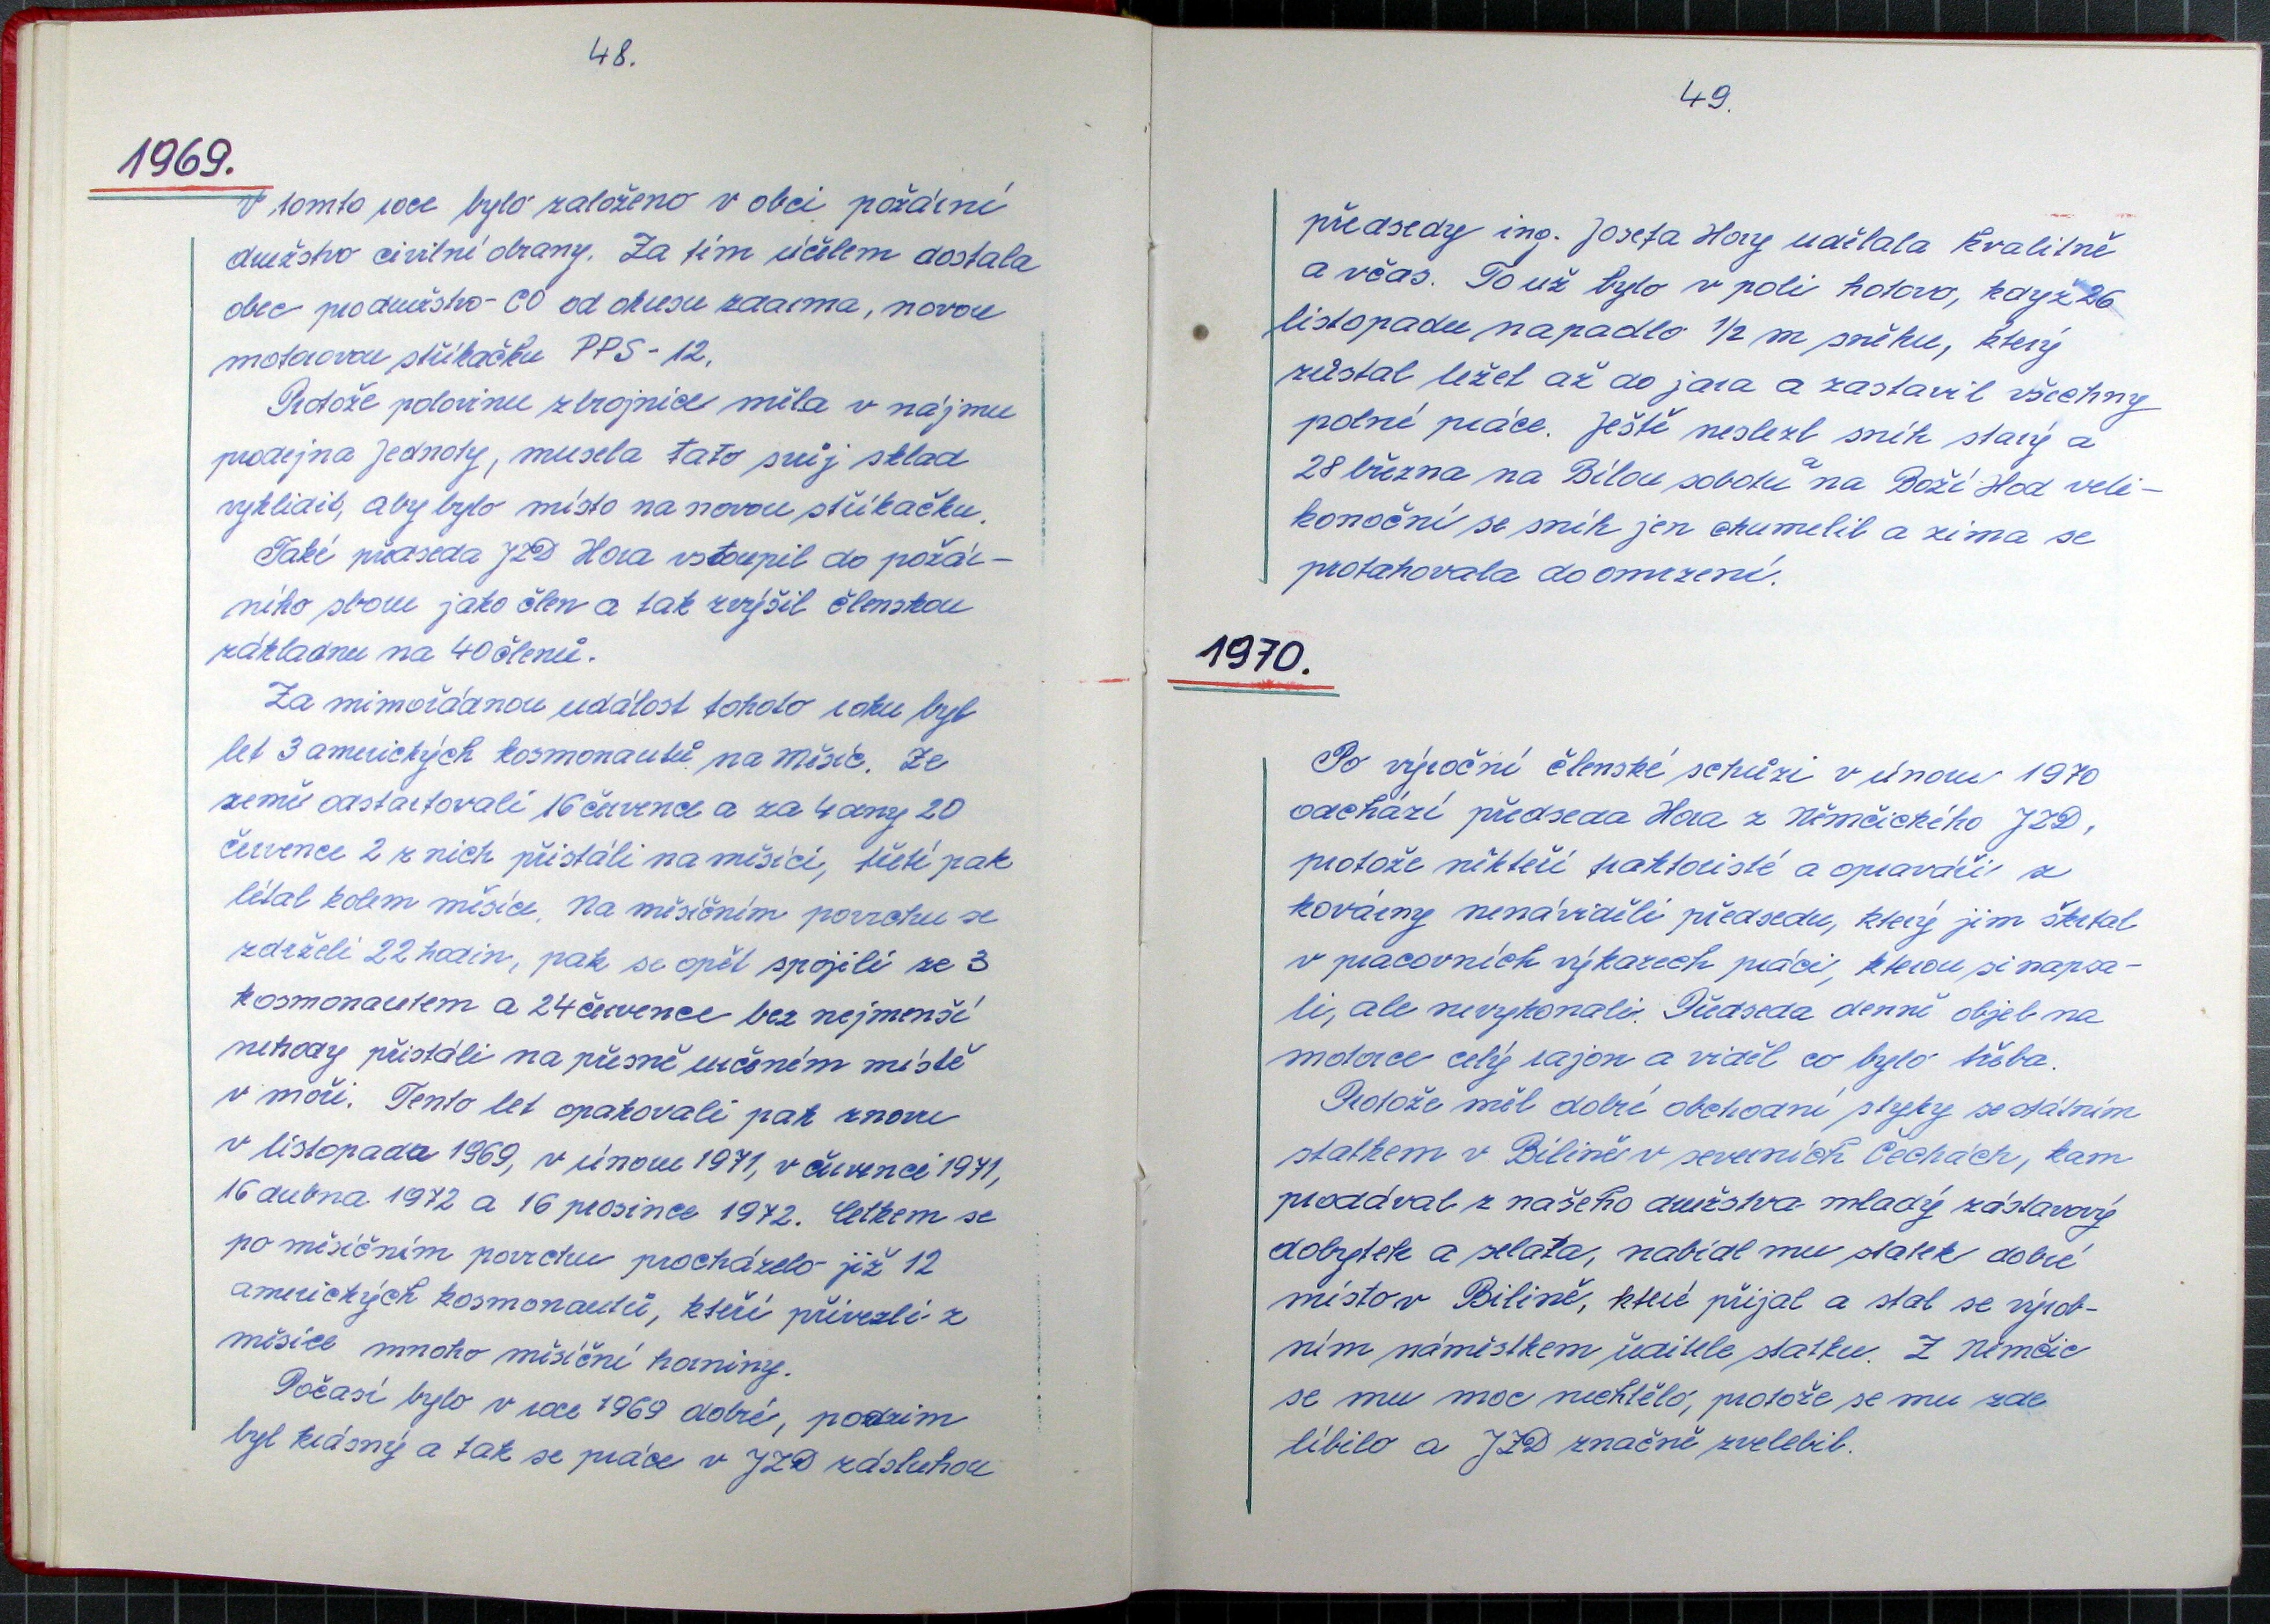 48.
1969.
V tomto roce bylo založeno v obci požární
družstvo civilní obrany. Za tím účelem dostala
obec pro družstvo - CO od okresu zdarma, novou
motorovou stříkačku PPS - 12.
Protože polovinu zbrojnice měla v nájmu
prodejna Jednoty, musela tato svůj sklad
vyklidit, aby bylo místo na novou stříkačku.
Také předseda JZD Hora vstoupil do požár-
ního sboru jako člen a tak zvýšil členskou
základnu na 40 členů.
Za mimořádnou událost tohoto roku byl
let 3 amerických kosmonautů na Měsíc. Ze
země odstartovali 16 července a za 4 dny 20
července 2 z nich přistáli na měsíci, třetí pak
létal kolem měsíce. Na měsíčním povrchu se
zdrželi 22 hodin, pak se opět spojili se 3
kosmonautem a 24 července bez nejmenší
nehody přistáli na přesně určeném místě
v moři. Tento let opakovali pak znovu
v listopadu 1969, v únoru 1971, v červenci 1971,
16 dubna 1972 a 16 prosince 1972. Celkem se
po měsíčním povrchu procházelo již 12
amerických kosmonautů, kteří přivezli z
měsíce mnoho měsíční horniny.
Počasí bylo v roce 1969 dobré, podzim
byl krásný a tak se práce v JZD zásluhou
49.
předsedy ing. Josefa Hory udělala kvalitně
a včas. To už bylo v poli hotovo, když 26
listopadu napadlo 1/2 m sněhu, který
zůstal ležet až do jara a zastavil všechny
polní práce. Ještě neslezl sníh starý a
28 března na Bílou sobotu a na Boží Hod veli-
konoční se sníh jen chumelil a zima se
protahovala do omrzení.
1970.
Po výroční členské schůzi v únoru 1970
odchází předseda Hora z Němčického JZD,
protože někteří traktoristé a opraváři z
kovárny nenáviděli předsedu, který jim škrtal
v pracovních výkazech práci, kterou si napsa-
li, ale nevykonali. Předseda denně objel na
motorce celý rajon a viděl co bylo třeba.
Protože měl dobré obchodní styky se státním
statkem v Bílině v severních Čechách, kam
prodával z našeho družstva mladý zástavový
dobytek a selata, nabídl mu statek dobré
místo v Bilině, které přijal a stal se výrob-
ním náměstkem ředitele statku. Z Němčic
se mu moc nechtělo, protože se mu zde
líbilo a JZD značně zvelebil.